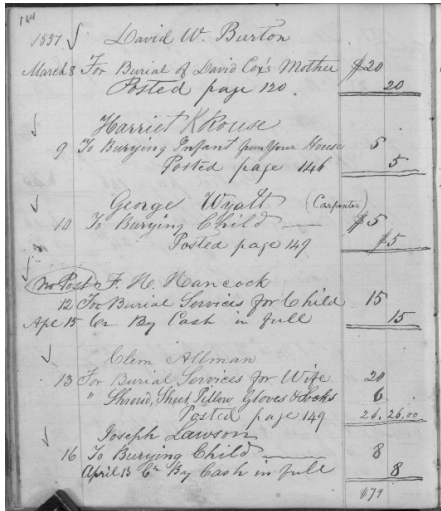 164
1857 David W. Burton
March 8 For Burial of David Cox's Mother $20
Posted page 120. 20
Harriet Krouse
9 To Burying Infant from Your House 5
Posted page 146 5
George Wyatt (Carpenter)
10 To Burying Child $5
Posted page 149 $5
No Post F. H. Hancock
12 For Burial Services for Child 15
Apl 15 Cr By Cash in full 15
Clem Allman
13 For Burial Services for Wife 20
" Shroud, Sheet, Pillow Gloves & Socks 6
Posted page 149 26. 26.00
Joseph Lawson
16 To Burying Child 8
April 13 Cr By Cash in full 8
$79